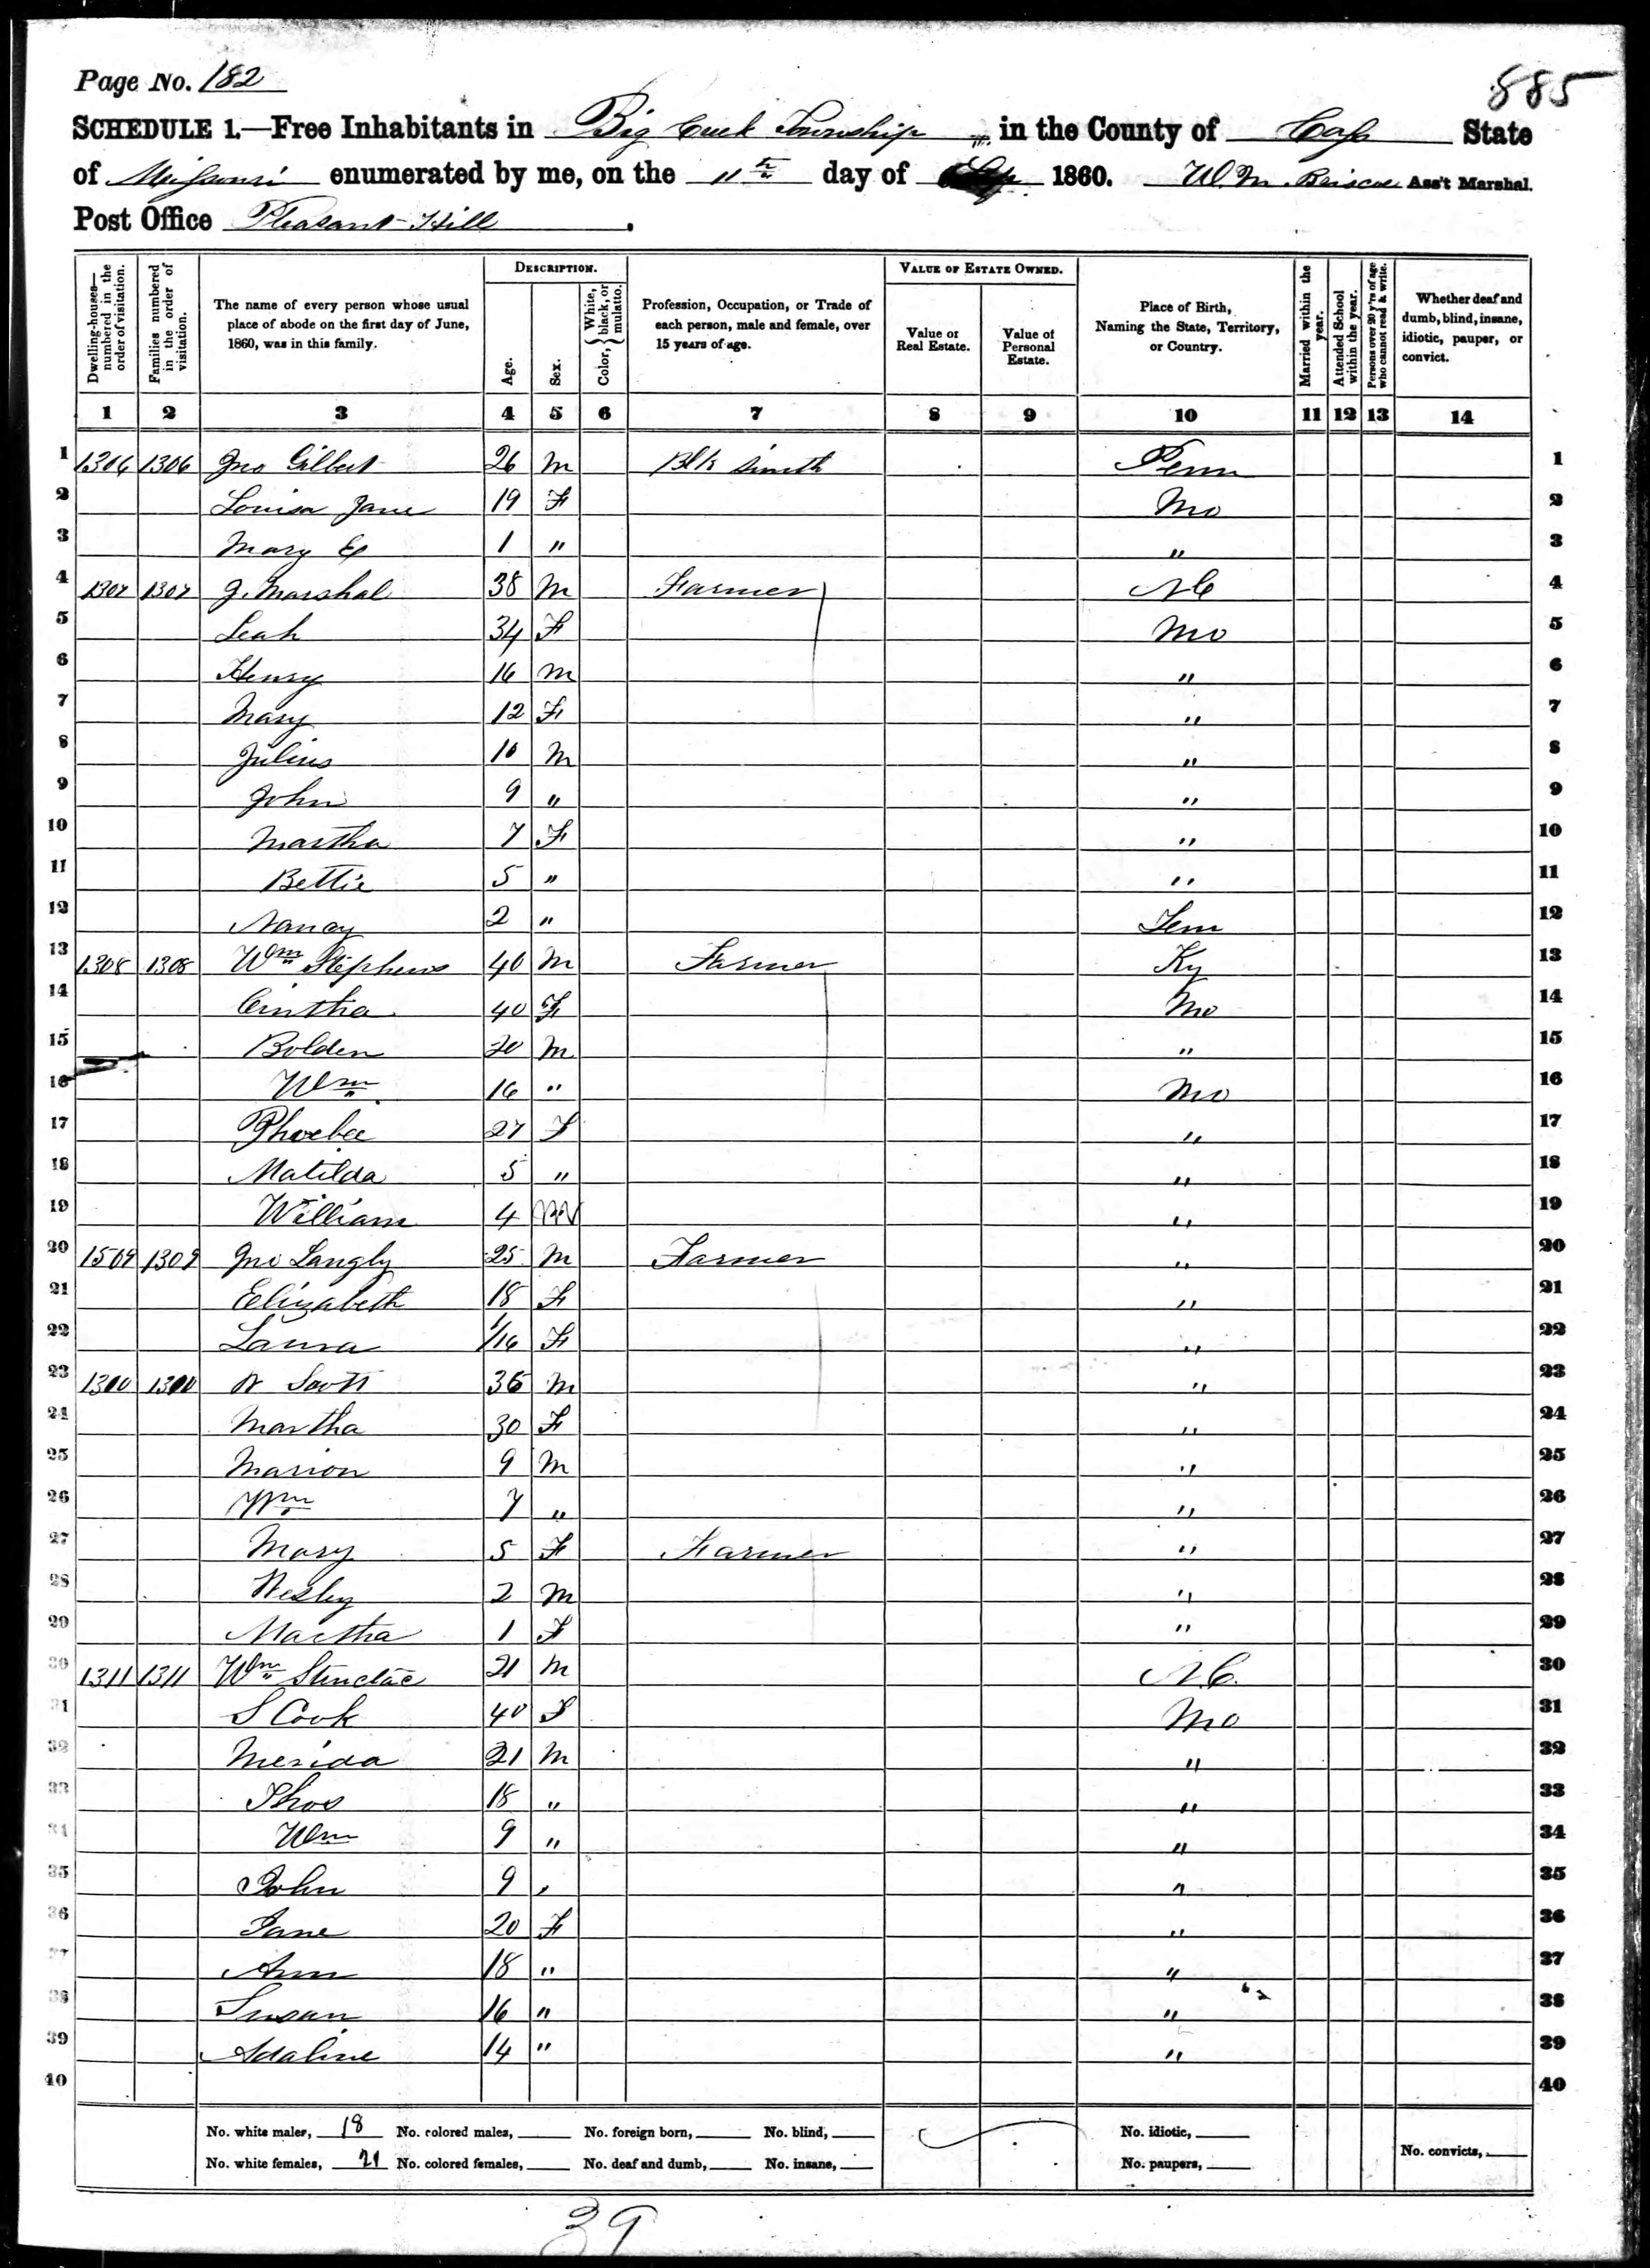 Page No. 182
885
SCHEDULE 1.—Free Inhabitants in Big Creek Township in the County of Cass State
of Missouri enumerated by me, on the 11th day of Sep 1860. W. M. Briscoe Ass't Marshal.
Post Office Pleasant Hill.
Dwelling-houses—numbered in the order of visitation.
Families numbered in the order of visitation.
The name of every person whose usual place of abode on the first day of June, 1860, was in this family.
DESCRIPTION.
Age.
Sex.
Color, { White, black, or mulatto.
Profession, Occupation, or Trade of each person, male and female, over 15 years of age.
VALUE OF ESTATE OWNED.
Value of Real Estate.
Value of Personal Estate.
Place of Birth, Naming the State, Territory, or Country.
Married within the year.
Attended School within the year.
Persons over 20 y'rs of age who cannot read & write.
Whether deaf and dumb, blind, insane, idiotic, pauper, or convict.
1 2 3 4 5 6 7 8 9 10 11 12 13 14
1 1306 1306 Jno Gilbert 26 M Blk Smith Penn 1
2 Louisa Jane 19 F Mo 2
3 Mary E 1 " " 3
4 1307 1307 J. Marshal 38 M Farmer NC 4
5 Leah 34 F Mo 5
6 Henry 16 M " 6
7 Mary 12 F " 7
8 Julius 10 M " 8
9 John 9 " " 9
10 Martha 7 F " 10
11 Bettie 5 " " 11
12 Nancy 2 " Tem 12
13 1308 1308 Wm Stephens 40 M Farmer Ky 13
14 Cintha 40 F Mo 14
15 Bolden 20 M " 15
16 Wm 16 " Mo 16
17 Phoebee 27 F " 17
18 Matilda 5 " " 18
19 William 4 M " 19
20 1509 1309 Jno Langly 25 M Farmer " 20
21 Elizabeth 18 F " 21
22 Laura 1/16 F " 22
23 1310 1310 W Scott 36 M " 23
24 Martha 30 F " 24
25 Marion 9 M " 25
26 Wm 7 " " 26
27 Mary 5 F Farmer " 27
28 Wesley 2 M " 28
29 Martha 1 F " 29
30 1311 1311 Wm 21 M N.C. 30
31 S Cook 40 F Mo 31
32 Merida 21 M " 32
33 Thos 18 " " 33
34 Wm 9 " " 34
35 John 9 " " 35
36 Jane 20 F " 36
37 Ann 18 " " 37
38 Susan 16 " " 38
39 Adaline 14 " " 39
40 40
No. white males, 18 No. colored males, No. foreign born, No. blind, No. idiotic,
No. white females, 21 No. colored females, No. deaf and dumb, No. insane, No. paupers, No. convicts,
39